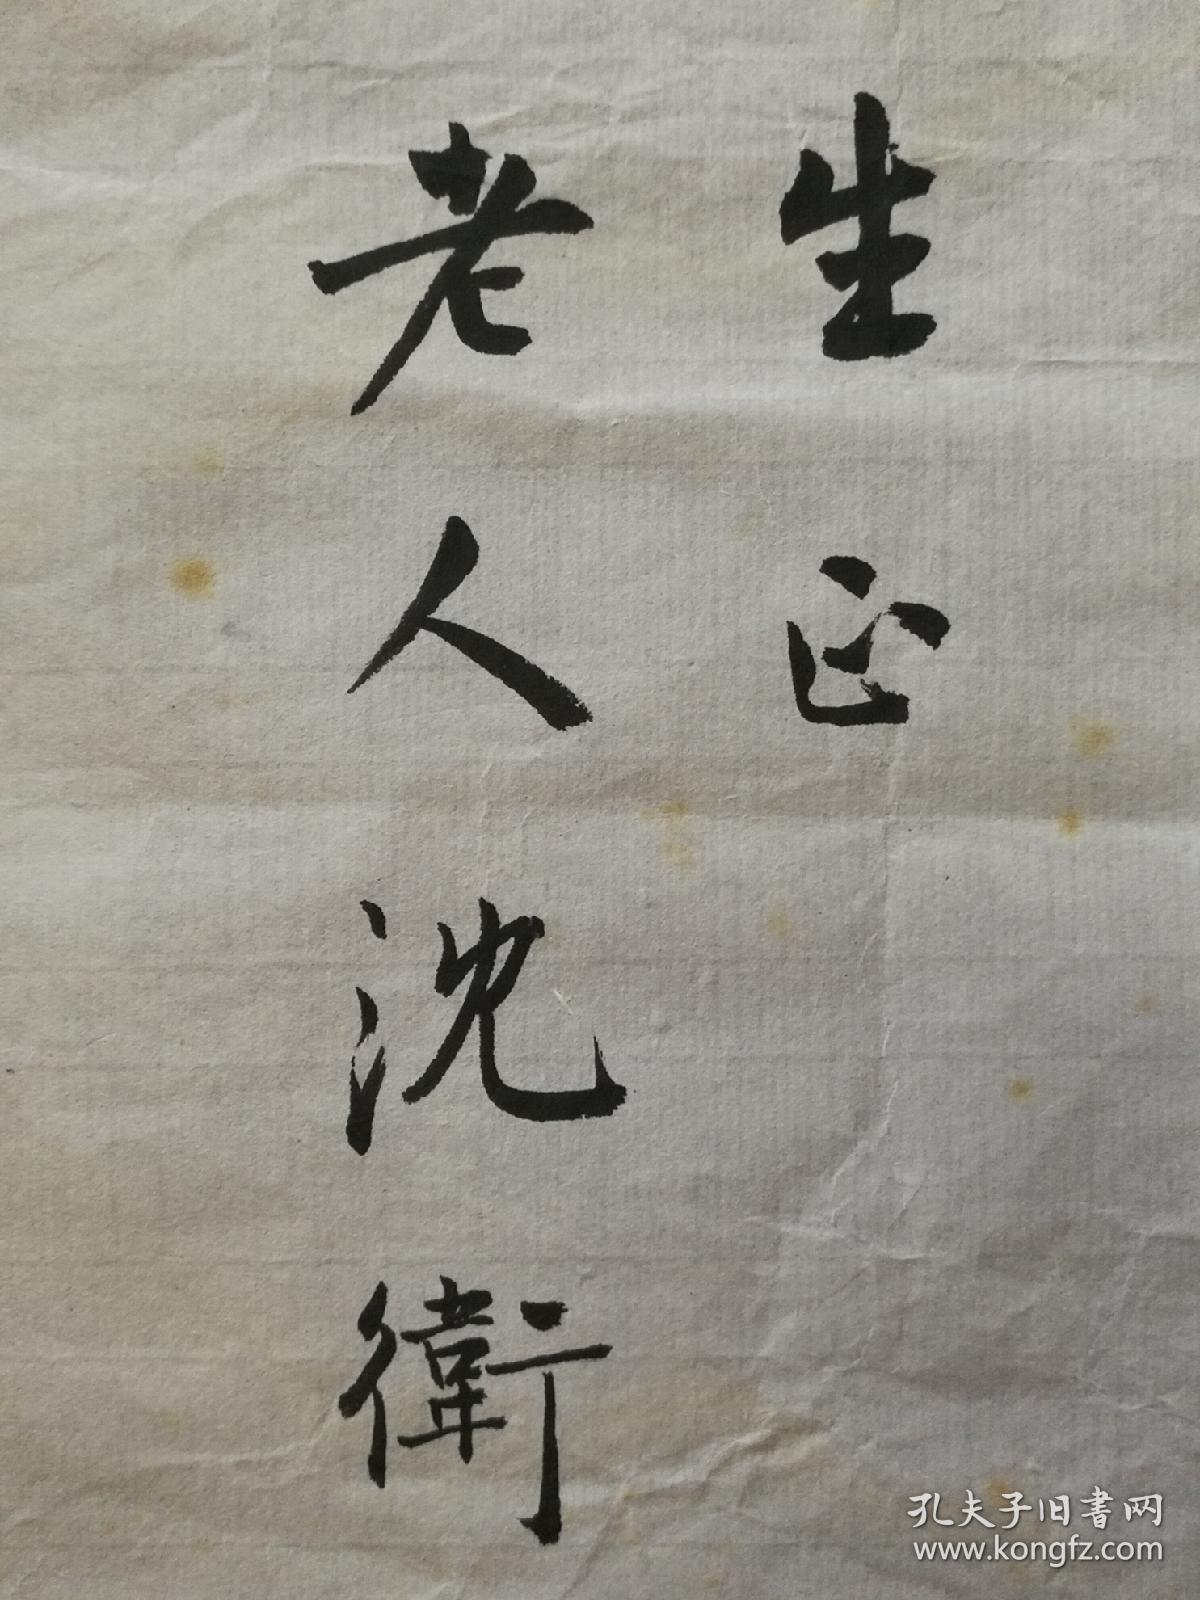 生正
老人沈衛
孔夫子旧書网
www.kongfz.com